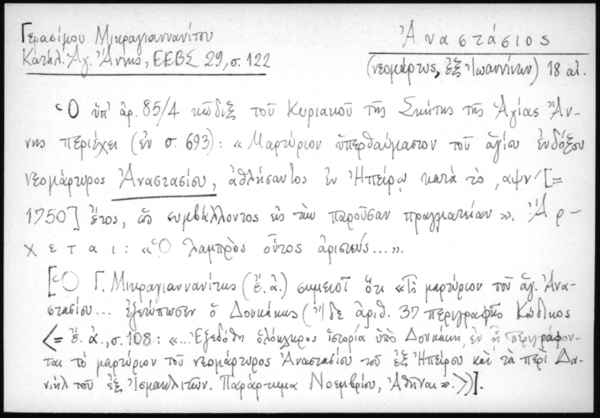 Γερασίμου Μικραγιαννανίτου
Κατάλ. Ἁγ. Ἄννης, ΕΕΒΣ 29, σ. 122
Ἀναστάσιος
(νεομάρτυς, ἐξ Ἰωαννίνων) 18 αἰ.
Ὁ ὑπ' ἀρ. 85/4 κῶδιξ τοῦ Κυριακοῦ τῆς Σκήτης τῆς Ἁγίας Ἄν-
νης περιέχει (ἐν σ. 693): «Μαρτύριον ὑπερθαύμαστον τοῦ ἁγίου ἐνδόξου
νεομάρτυρος Ἀναστασίου, ἀθλήσαντος ἐν Ἠπείρῳ κατὰ τὸ ͵αψν΄ [=
1750] ἔτος, συμβάλλοντος εἰς τὴν παροῦσαν πραγματείαν». Ἄρ-
χεται: «Ὁ λαμπρὸς οὗτος ἀριστεύς...».
[Ὁ Γ. Μικραγιαννανίτης (ἔ. ἀ.) σημειοῖ ὅτι «Τὸ μαρτύριον τοῦ ἁγ. Ἀνα-
στασίου... ἐξετύπωσεν ὁ Δουκάκης (Ἴδε ἀριθ. 37 περιγραφῆς Κώδικος
<= ἔ. ἀ., σ. 108: «...Ἐξεδόθη ὁλόκληρος ἱστορία ὑπὸ Δουκάκη, ἐν ᾗ περιγράφον-
ται τὸ μαρτύριον τοῦ νεομάρτυρος Ἀναστασίου τοῦ ἐξ Ἠπείρου καὶ τὰ περὶ Δα-
νιὴλ τοῦ ἐξ Ἰσμαηλιτῶν. Παράρτημα Νοεμβρίου, Ἀθῆναι».>)].